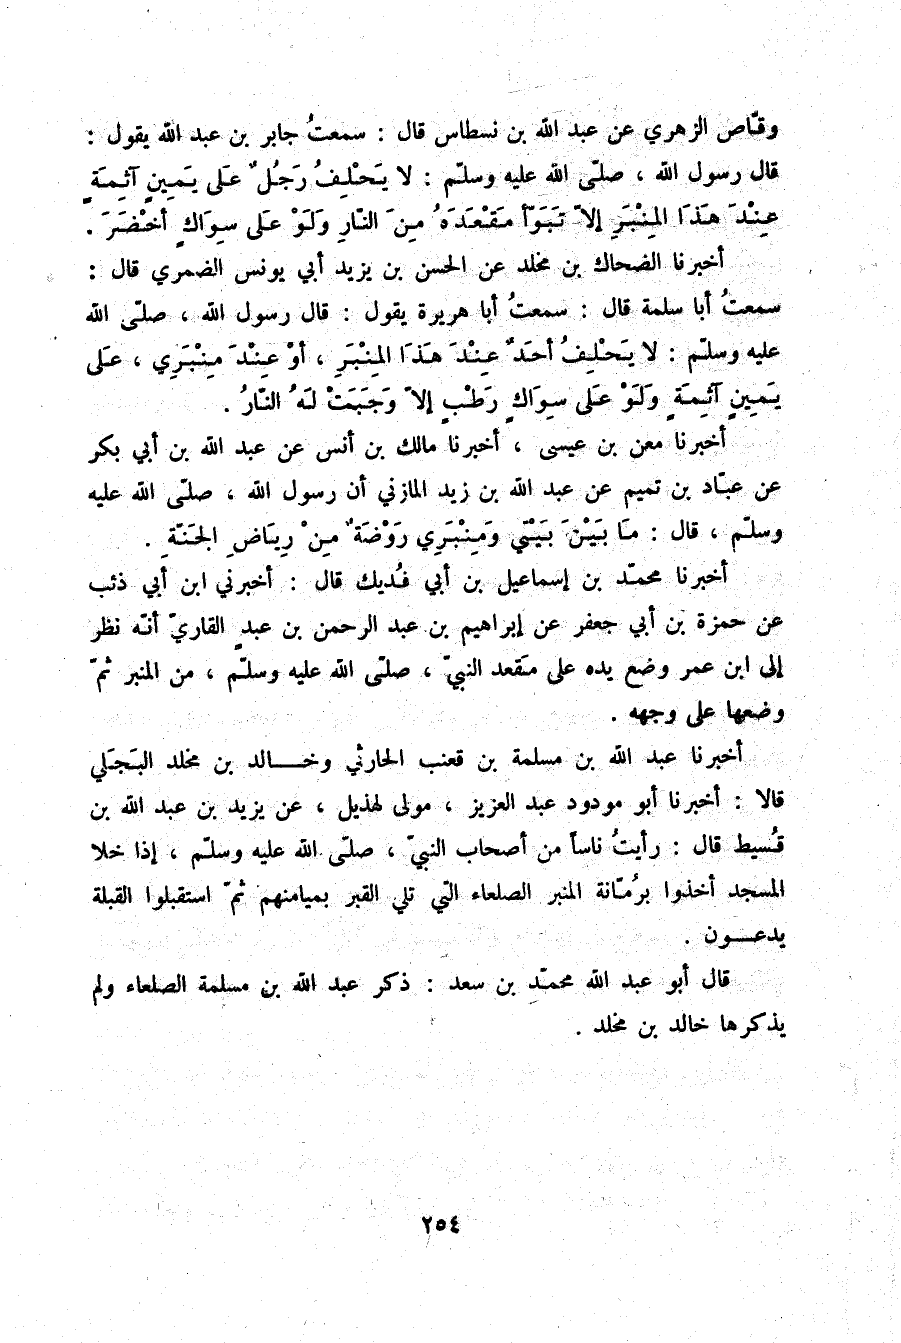 وقّاص الزهري عن عبد الله بن نسطاس قال : سمعتُ جابر بن عبد الله يقول :
قال رسول الله ، صلّى الله عليه وسلّم : لا يَحْلِفُ رَجُلٌ عَلى يَمِينٍ آثِمَةٍ
عِنْدَ هَذَا المِنْبَرِ إلاّ تَبَوّأ مَقْعَدَهُ مِنَ النّارِ وَلَوْ عَلى سِوَاكٍ أخْضَرَ .
أخبرنا الضحاك بن مخلد عن الحسن بن يزيد أبي يونس الضمري قال :
سمعتُ أبا سلمة قال : سمعتُ أبا هريرة يقول : قال رسول الله ، صلّى الله
عليه وسلّم : لا يَحْلِفُ أحَدٌ عِنْدَ هَذَا المِنْبَرِ ، أوْ عِنْدَ مِنْبَرِي ، عَلى
يَمِينٍ آثِمَةٍ وَلَوْ عَلى سِوَاكٍ رَطْبٍ إلاّ وَجَبَتْ لَهُ النّارُ .
أخبرنا معن بن عيسى ، أخبرنا مالك بن أنس عن عبد الله بن أبي بكر
عن عبّاد بن تميم عن عبد الله بن زيد المازني أن رسول الله ، صلّى الله عليه
وسلّم ، قال : مَا بَيْنَ بَيْتي وَمِنْبَرِي رَوْضَةٌ مِنْ رِيَاضِ الجَنّةِ .
أخبرنا محمّد بن إسماعيل بن أبي فُديك قال : أخبرني ابن أبي ذئب
عن حمزة بن أبي جعفر عن إبراهيم بن عبد الرحمن بن عبدٍ القاريّ أنّه نظر
إلى ابن عمر وضع يده على مَقعد النبيّ ، صلّى الله عليه وسلّم ، من المنبر ثمّ
وضعها على وجهه .
أخبرنا عبد الله بن مسلمة بن قعنب الحارثي وخـــالد بن مخلد البَجَلي
قالا : أخبرنا أبو مودود عبد العزيز ، مولى لهذيل ، عن يزيد بن عبد الله بن
قُسيط قال : رأيتُ ناساً من أصحاب النبيّ ، صلّى الله عليه وسلّم ، إذا خلا
المسجد أخذوا برُمّانة المنبر الصلعاء التي تلي القبر بميامنهم ثمّ استقبلوا القبلة
يدعـــون .
قال أبو عبد الله محمّد بن سعد : ذكر عبد الله بن مسلمة الصلعاء ولم
يذكرها خالد بن مخلد .
٢٥٤